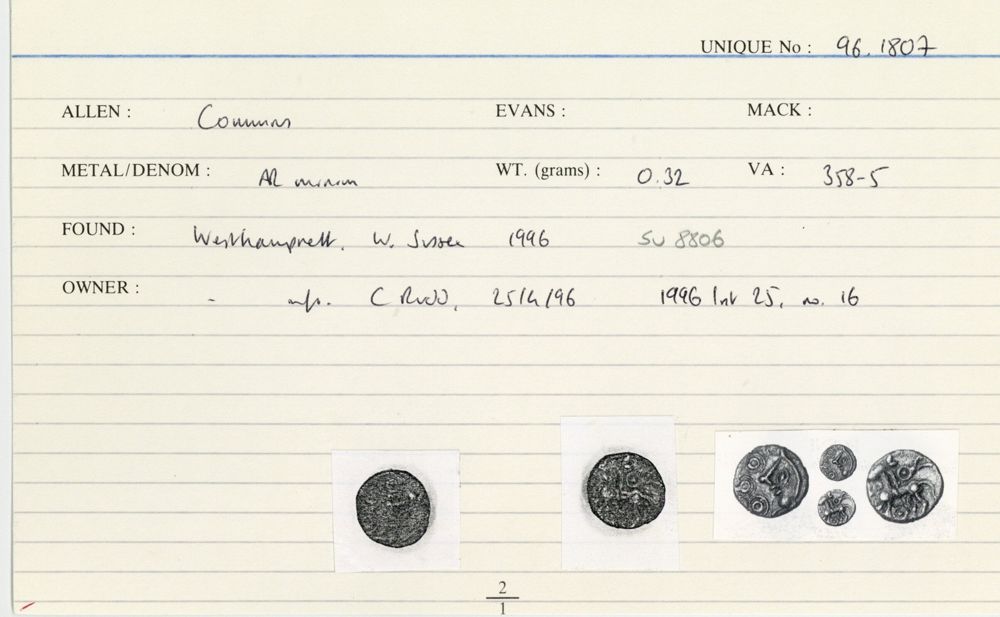 UNIQUE No : 96.1807
ALLEN : Commius EVANS : MACK :
METAL/DENOM : AR minim WT. (grams) : 0.32 VA : 358-5
FOUND : Westhampnett, W. Sussex 1996 SU 8806
OWNER : - C Rudd, 25/4/96 1996 list 25, no. 16
2
1